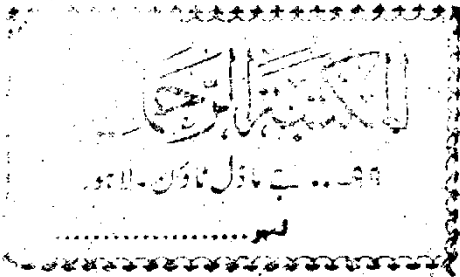 المكتبة الرحمانية
۹۹... جے ماڈل ٹاؤن - لاہور
نمبر ..............................